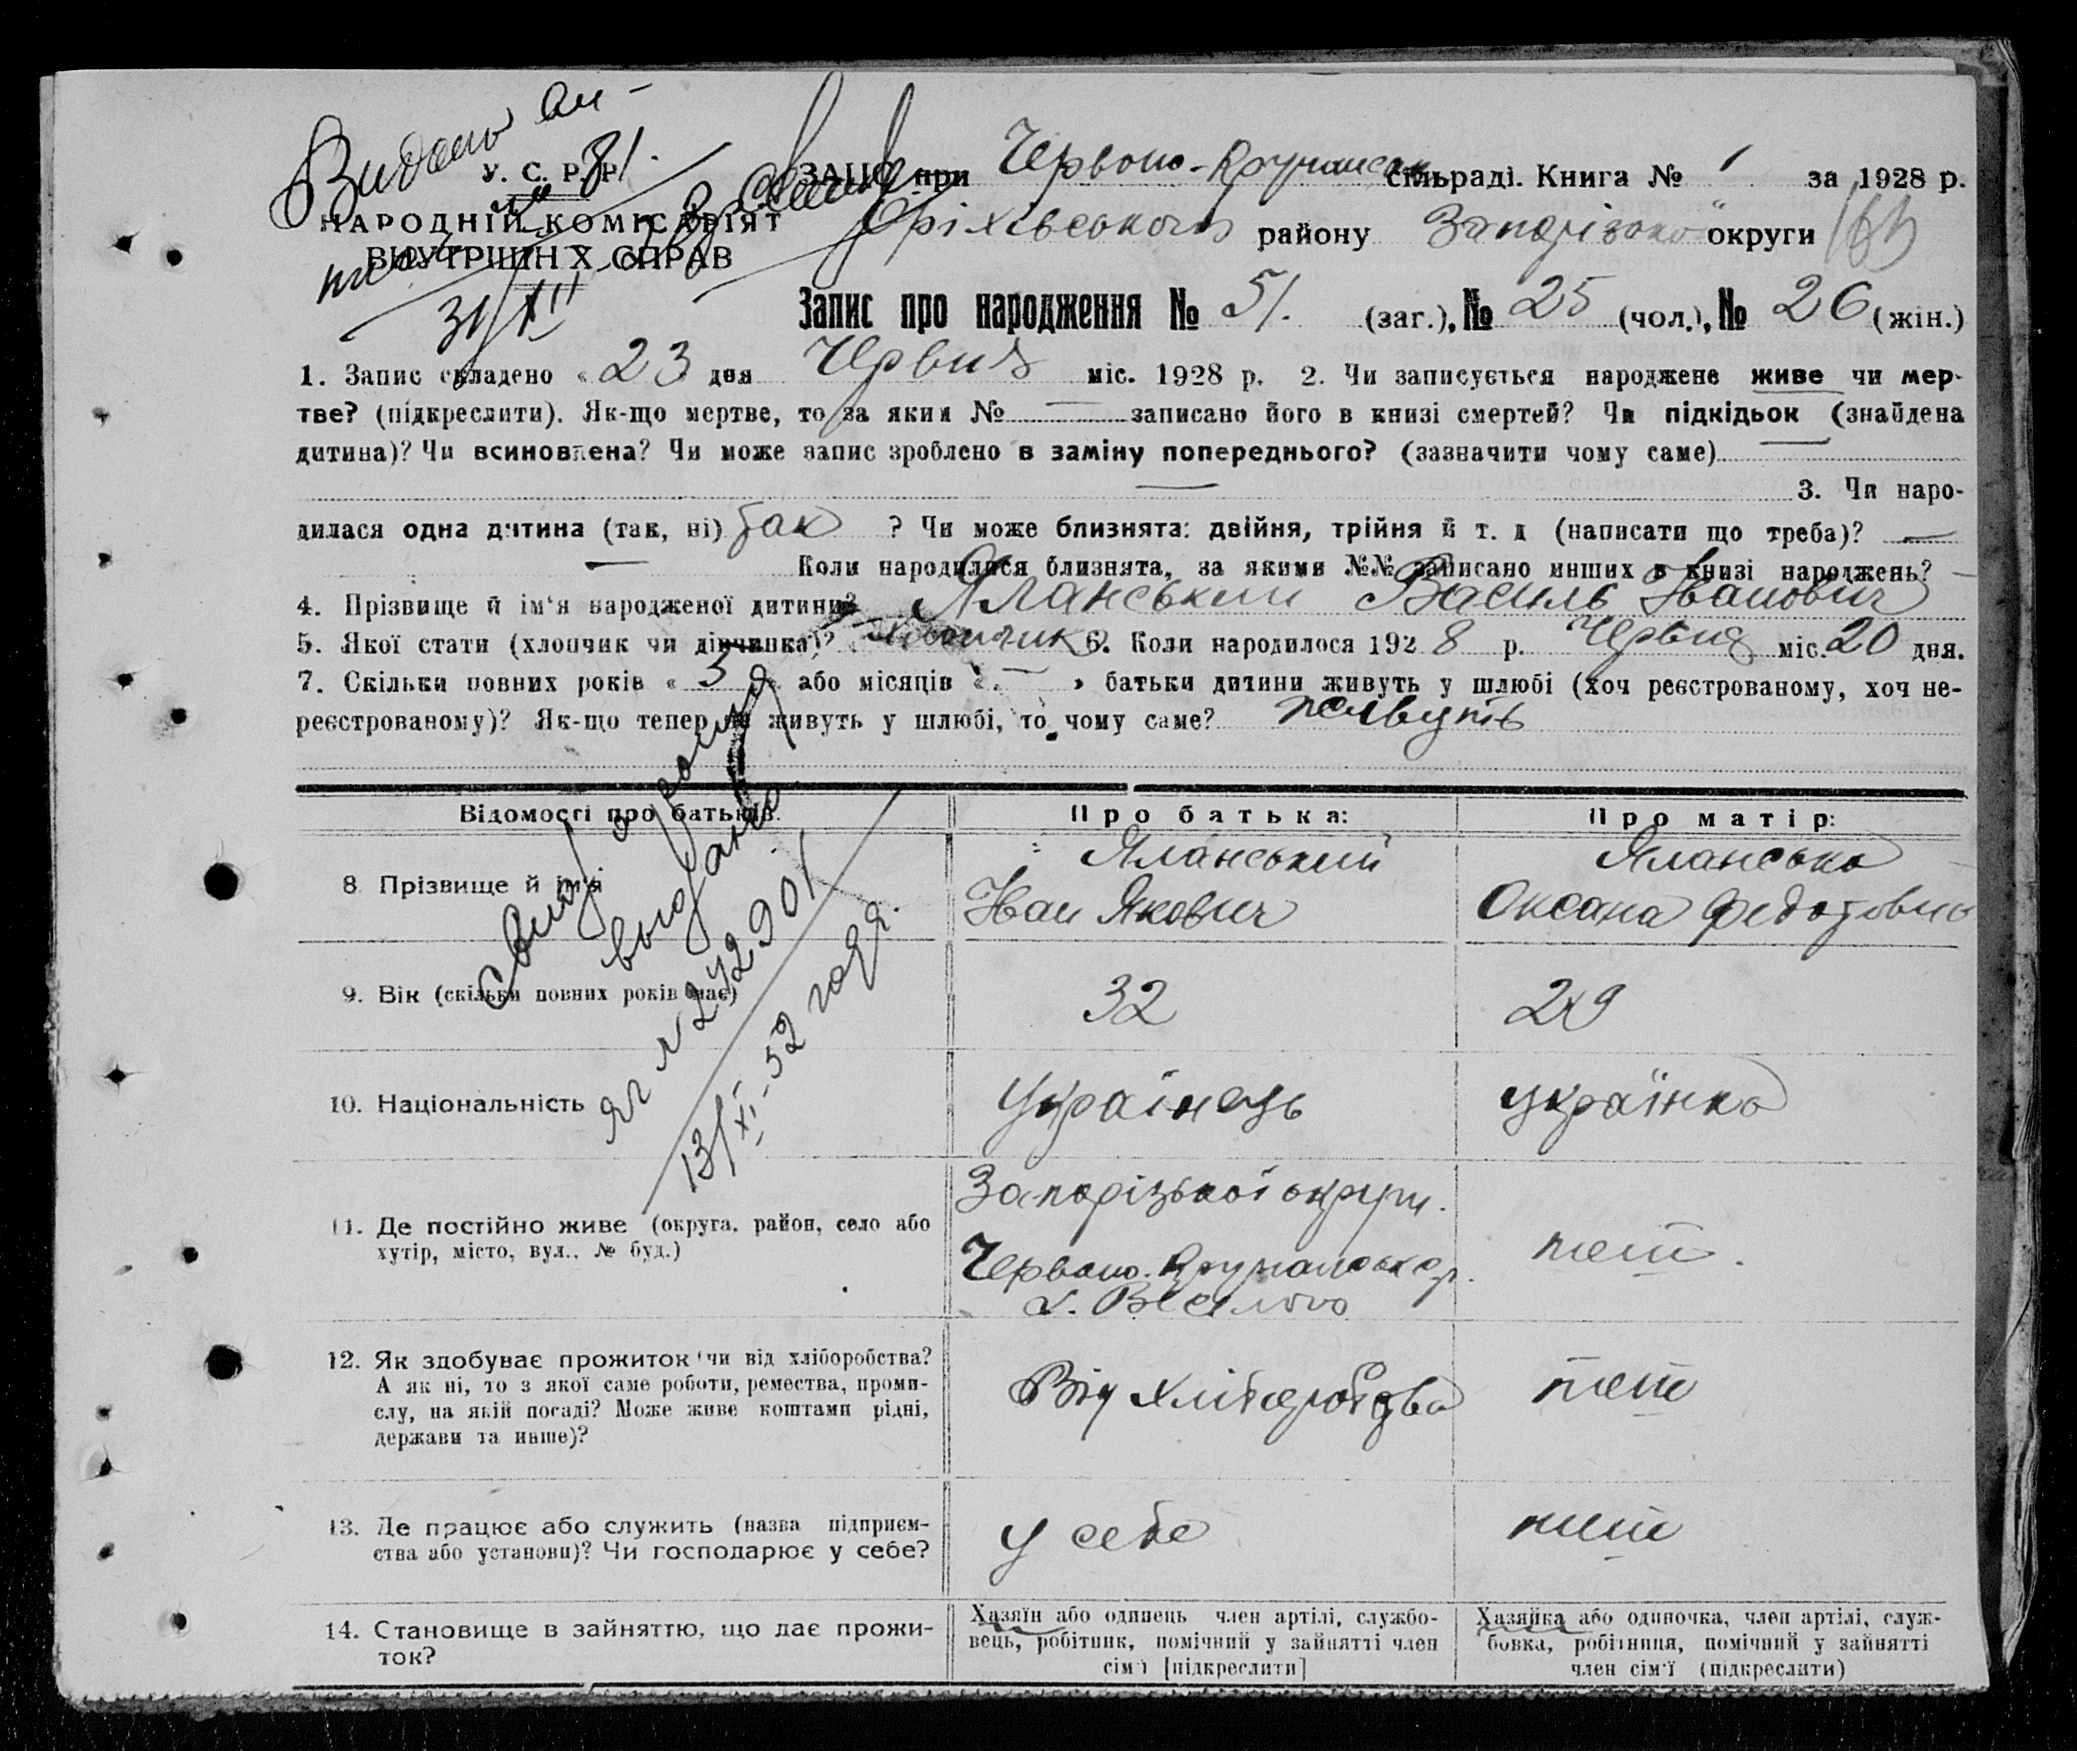 Видано
У. С. Р. Р.
НАРОДНІЙ КОМІСАРІЯТ
ВНУТРІШНІХ СПРАВ
ЗАЦС при Червоно- сільраді. Книга № 1 за 1928 р.
Оріхівського району Запорізької округи
Запис про народження № 51. (заг.), № 25 (чол.), № 26 (жін.)
1. Запис складено « 23 дня Червня міс. 1928 р. 2. Чи записується народжене живе чи мер-
тве? (підкреслити). Як-що мертве, то за яким № — записано його в книзі смертей? Чи підкідьок (знайдена
дитина)? Чи всиновлена? Чи може запис зроблено в заміну попереднього? (зазначити чому саме) —
— 3. Чи наро-
дилася одна дитина (так, ні) так ? Чи може близнята: двійня, трійня й т. д (написати що треба)? —
— Коли народилися близнята, за якими №№ записано инших в книзі народжень? —
4. Прізвище й ім'я народженої дитини? Яланський Василь Іванович
5. Якої стати (хлопчик чи дівчинка)? хлопчик 6. Коли народилося 1928 р. Червня міс. 20 дня.
7. Скільки повних років « 5 » або місяців « — » батьки дитини живуть у шлюбі (хоч реєстрованому, хоч не-
реєстрованому)? Як-що тепер не живуть у шлюбі, то чому саме? живуть
Відомості про батьків. Про батька: Про матір:
8 Прізвище й ім'я Яланський Іван Якович Яланська Оксана Федотовна
9. Вік (скільки повних років має) 32 29
10. Національність Українець Українка
11. Де постійно живе (округа, район, село або
хутір, місто, вул., № буд.)
Запорізької округи.
теж.
12. Як здобуває прожиток (чи від хліборобства?
А як ні, то з якої саме роботи, ремества, проми-
слу, на якій посаді? Може живе коштами рідні,
держави та инше)?
Від хліборобства теж
13. Де працює або служить (назва підприєм-
ства або установи)? Чи господарює у себе?
у себе теж
14. Становище в зайняттю, що дає прожи-
ток?
Хазяїн або одинець член артілі, службо-
вець, робітник, помічний у зайнятті член
сім'ї [підкреслити]
Хазяйка або одиночка, член артілі, служ-
бовка, робітниця, помічний у зайнятті
член сім'ї (підкреслити)
выдано
13/XI-52 года.